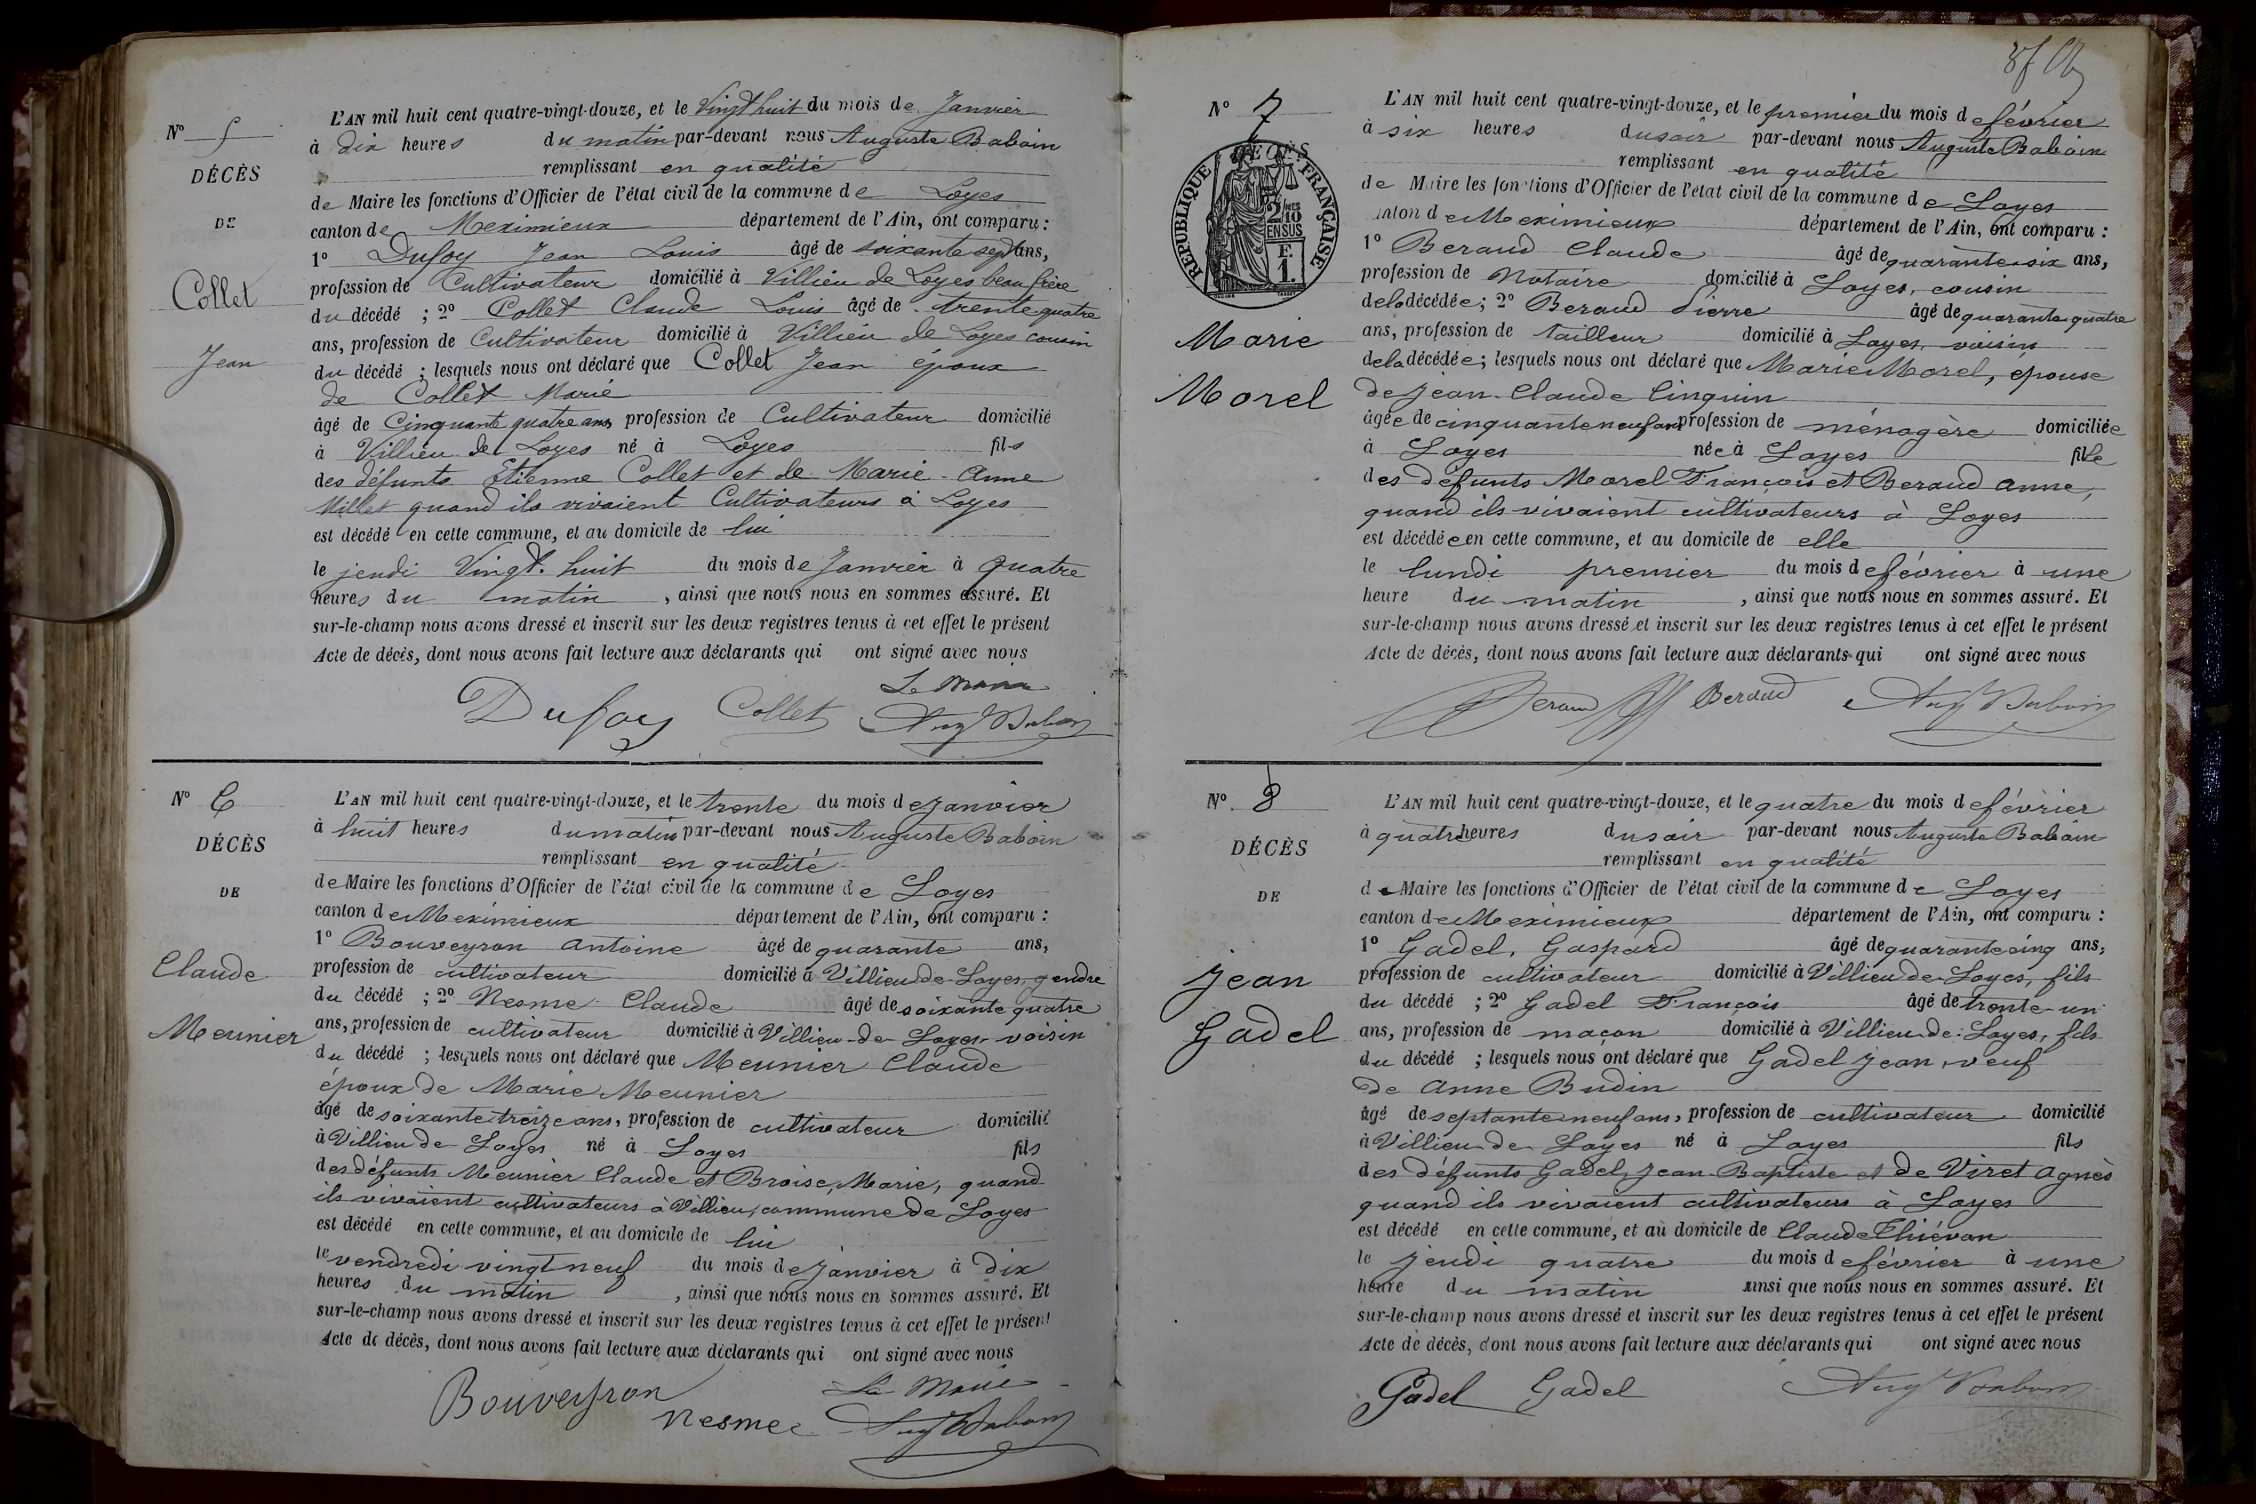 N° 5
DÉCÈS
DE
Collet
Jean
L'AN mil huit cent quatre-vingt-douze, et le Vingt huit du mois de Janvier
à dix heures du matin par-devant nous Auguste Baboin
remplissant en qualité
de Maire les fonctions d'Officier de l'état civil de la commune de Loyes
canton de Meximieux département de l'Ain, ont comparu :
1° Dufoy Jean Louis âgé de soixante sept ans,
profession de Cultivateur domicilié à Villieu de Loyes beau frère
du décédé ; 2° Collet Claude Louis âgé de trente quatre
ans, profession de Cultivateur domicilié à Villieu de Loyes cousin
du décédé ; lesquels nous ont déclaré que Collet Jean époux
de Collet Marie
âgé de Cinquante quatre ans, profession de Cultivateur domicilié
à Villieu de Loyes né à Loyes fils
des défunts Etienne Collet et de Marie-Anne
Millet quand ils vivaient Cultivateurs à Loyes
est décédé en cette commune, et au domicile de lui
le jeudi Vingt-huit du mois de Janvier à quatre
heures du matin, ainsi que nous nous en sommes assuré. Et
sur-le-champ nous avons dressé et inscrit sur les deux registres tenus à cet effet le présent
Acte de décès, dont nous avons fait lecture aux déclarants qui ont signé avec nous
Le Maire
Dufoy Collet Aug Baboin
N° 6
DÉCÈS
DE
Claude
Meunier
L'AN mil huit cent quatre-vingt-douze, et le trente du mois de janvier
à huit heures du matin par-devant nous Auguste Baboin
remplissant en qualité
de Maire les fonctions d'Officier de l'état civil de la commune de Loyes
canton de Meximieux département de l'Ain, ont comparu :
1° Bouveyron Antoine âgé de quarante ans,
profession de cultivateur domicilié à Villieu-de-Loyes, gendre
du décédé ; 2° Nesme Claude âgé de soixante quatre
ans, profession de cultivateur domicilié à Villieu-de-Loyes voisin
du décédé ; lesquels nous ont déclaré que Meunier Claude
époux de Marie Meunier
âgé de soixante treize ans, profession de cultivateur domicilié
à Villieu de Loyes né à Loyes fils
des défunts Meunier Claude et Broise, Marie, quand
ils vivaient cultivateurs à Villieu, commune de Loyes
est décédé en cette commune, et au domicile de lui
le vendredi vingt neuf du mois de janvier à dix
heures du matin, ainsi que nous nous en sommes assuré. Et
sur-le-champ nous avons dressé et inscrit sur les deux registres tenus à cet effet le présent
Acte de décès, dont nous avons fait lecture aux déclarants qui ont signé avec nous
Bouveyron Le Maire
Nesme Aug Baboin
N° 7
DÉCÈS
RÉPUBLIQUE FRANÇAISE
2/10 MES
EN SUS
F.
1.
Marie
Morel
L'AN mil huit cent quatre-vingt-douze, et le premier du mois de février
à six heures du soir par-devant nous Auguste Baboin
remplissant en qualité
de Maire les fonctions d'Officier de l'état civil de la commune de Loyes
canton de Meximieux département de l'Ain, ont comparu :
1° Beraud Claude âgé de quarante-six ans,
profession de Notaire domicilié à Loyes, cousin
de la décédée ; 2° Beraud Pierre âgé de quarante quatre
ans, profession de tailleur domicilié à Loyes, voisin
de la décédée ; lesquels nous ont déclaré que Marie Morel, épouse
de Jean-Claude Cinquin
âgée de cinquante neuf ans profession de ménagère domiciliée
à Loyes née à Loyes fille
des défunts Morel François et Beraud Anne,
quand ils vivaient cultivateurs à Loyes
est décédée en cette commune, et au domicile de elle
le lundi premier du mois de février à une
heure du matin, ainsi que nous nous en sommes assuré. Et
sur-le-champ nous avons dressé et inscrit sur les deux registres tenus à cet effet le présent
Acte de décès, dont nous avons fait lecture aux déclarants qui ont signé avec nous
Beraud Beraud Aug Baboin
N° 8
DÉCÈS
DE
Jean
Gadel
L'AN mil huit cent quatre-vingt-douze, et le quatre du mois de février
à quatre heures du soir par-devant nous Auguste Baboin
remplissant en qualité
de Maire les fonctions d'Officier de l'état civil de la commune de Loyes
canton de Meximieux département de l'Ain, ont comparu :
1° Gadel, Gaspard âgé de quarante cinq ans,
profession de cultivateur domicilié à Villieu de Loyes, fils
du décédé ; 2° Gadel François âgé de trente-un
ans, profession de maçon domicilié à Villieu-de-Loyes, fils
du décédé ; lesquels nous ont déclaré que Gadel Jean, veuf
de Anne Budin
âgé de septante neuf ans, profession de cultivateur domicilié
à Villieu-de-Loyes né à Loyes fils
des défunts Gadel, Jean-Baptiste et de Viret Agnès
quand ils vivaient cultivateurs à Loyes
est décédé en cette commune, et au domicile de Claude Thiévon
le jeudi quatre du mois de février à une
heure du matin ainsi que nous nous en sommes assuré. Et
sur-le-champ nous avons dressé et inscrit sur les deux registres tenus à cet effet le présent
Acte de décès, dont nous avons fait lecture aux déclarants qui ont signé avec nous
Gadel Gadel Aug Baboin